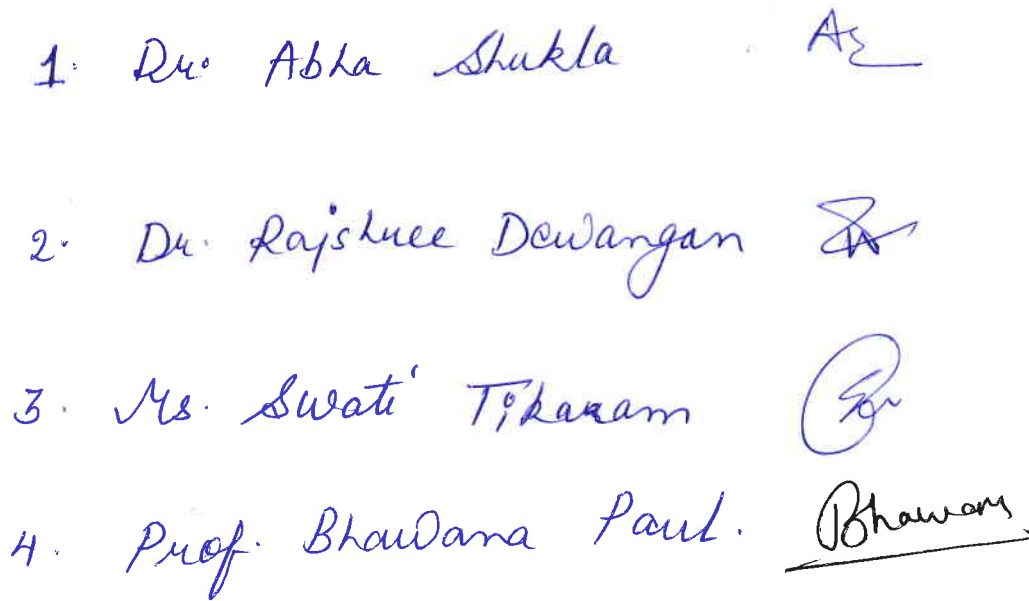 1. Dr. Abha Shukla
2. Dr. Rajshree Dewangan
3. Ms. Swati Tikaram
4. Prof. Bhawana Paul. Bhawana